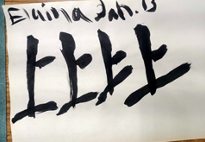 Elaina Jan. 13
上上上上